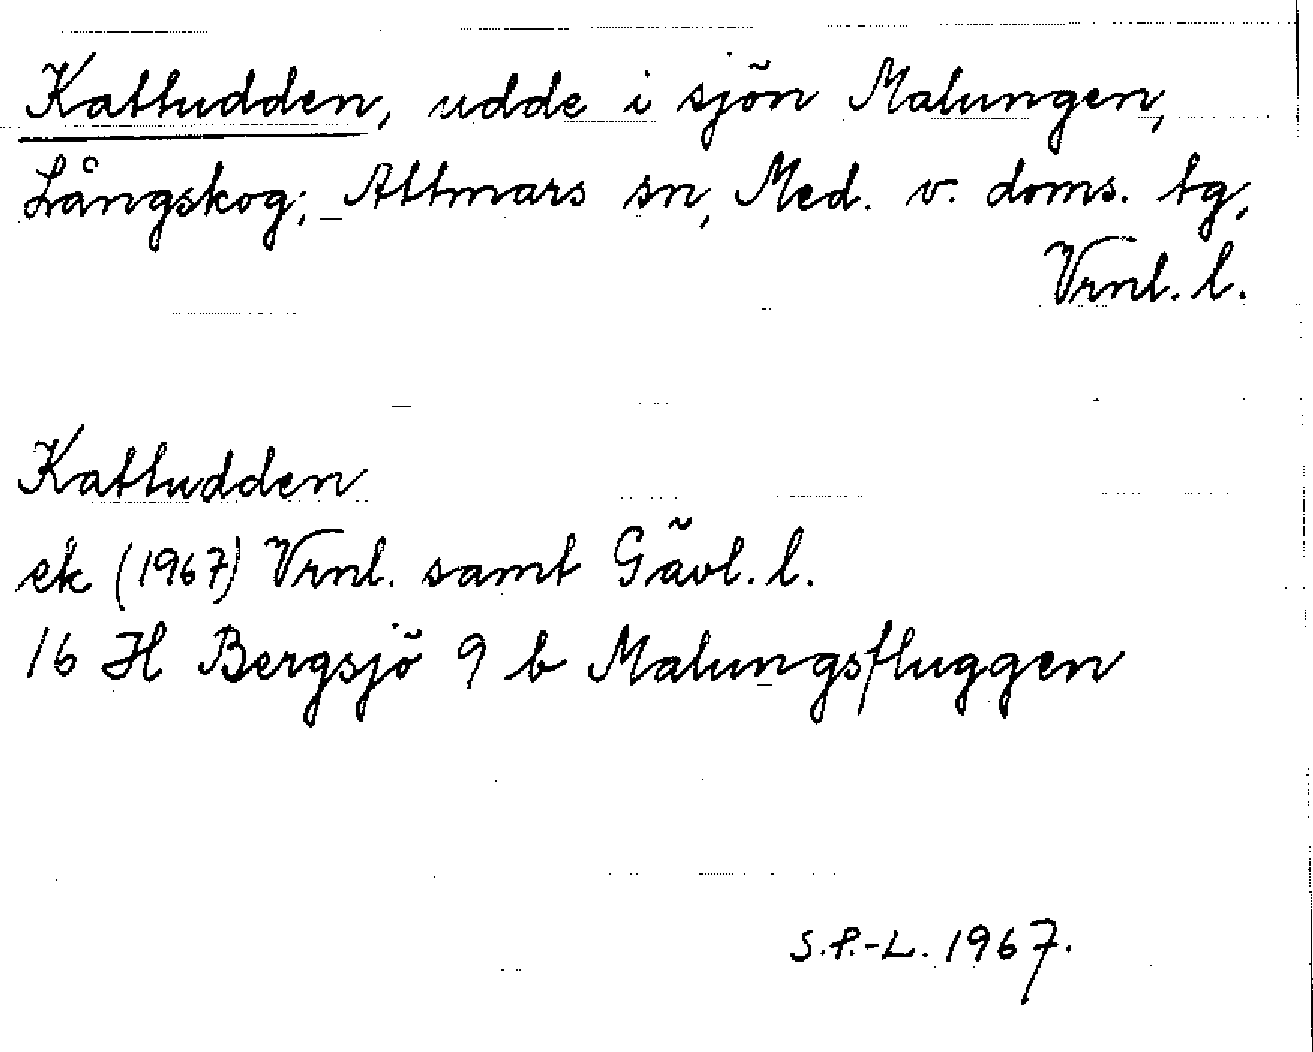 Kattudden, udde i sjön Malungen,
Långskog; Attmars sn, Med. v. doms. tg,
Vrnl. l.
Kattudden
ek (1967) Vrnl. samt Gävl. l.
16 H Bergsjö 9 b Malungsfluggen
S.P.-L. 1967.